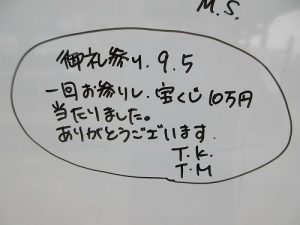 M.S.
御礼参り.9.5
一回お参りし、宝くじ10万円
当たりました。
ありがとうございます.
T.K.
T.M